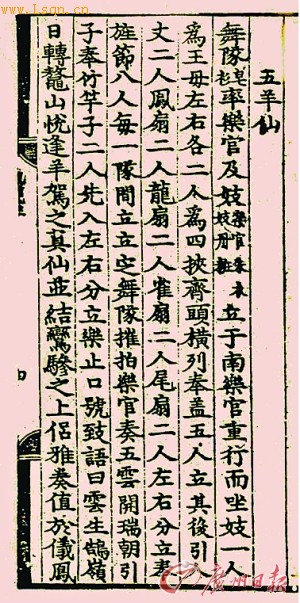 www.Lsqn.cn
五羊仙
舞隊皂衫率樂官及妓樂官朱衣妓丹粧立于南樂官重行而坐妓一人
爲王母左右各二人爲四挾齊頭橫列奉盖五人立其後引
丈二人鳳扇二人龍扇二人雀扇二人尾扇二人左右分立奉
旌節八人每一隊間立立定舞隊摧拍樂官奏五雲開瑞朝引
子奉竹竿子二人先入左右分立樂止口號致語曰雲生鵠嶺
日轉鼇山悅逢羊駕之真仙並結鸞驂之上侶雅奏值於儀鳳
廣州日報